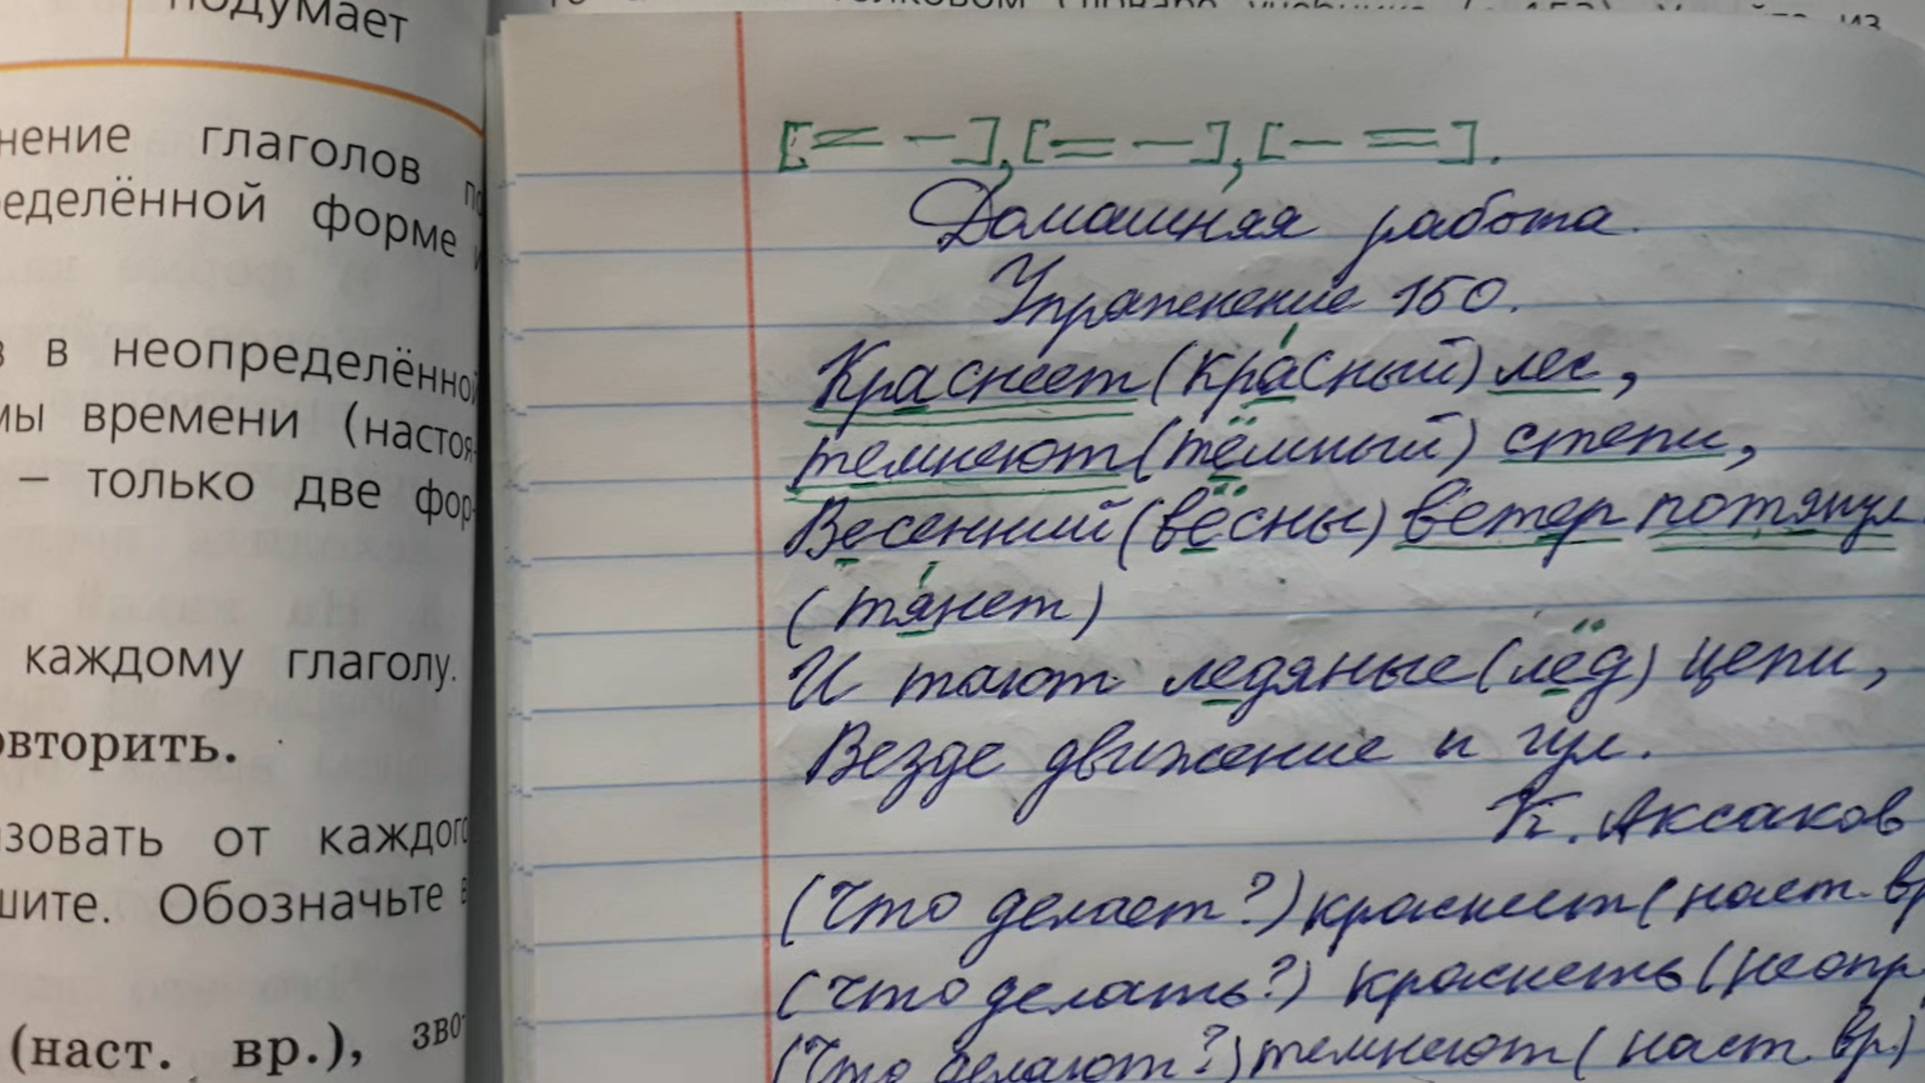 подумает
нение глаголов
еделённой форме и
в в неопределённой
мы времени (настоя-
– только две фор-
каждому глаголу.
овторить.
азовать от каждого
шите. Обозначьте в
(наст. вр.), зво
[= –], [= –], [– =].
Домашняя работа.
Упражнение 150.
Краснеет (красный) лес,
темнеют (тёмный) степи,
Весенний (вёсны) ветер потянул
(тянет)
И тают ледяные (лёд) цепи,
Везде движение и гул.
К. Аксаков
(Что делает?) краснеет (наст. вр
(Что делать?) краснеть (неопр.
(Что делают?) темнеют (наст. вр.)